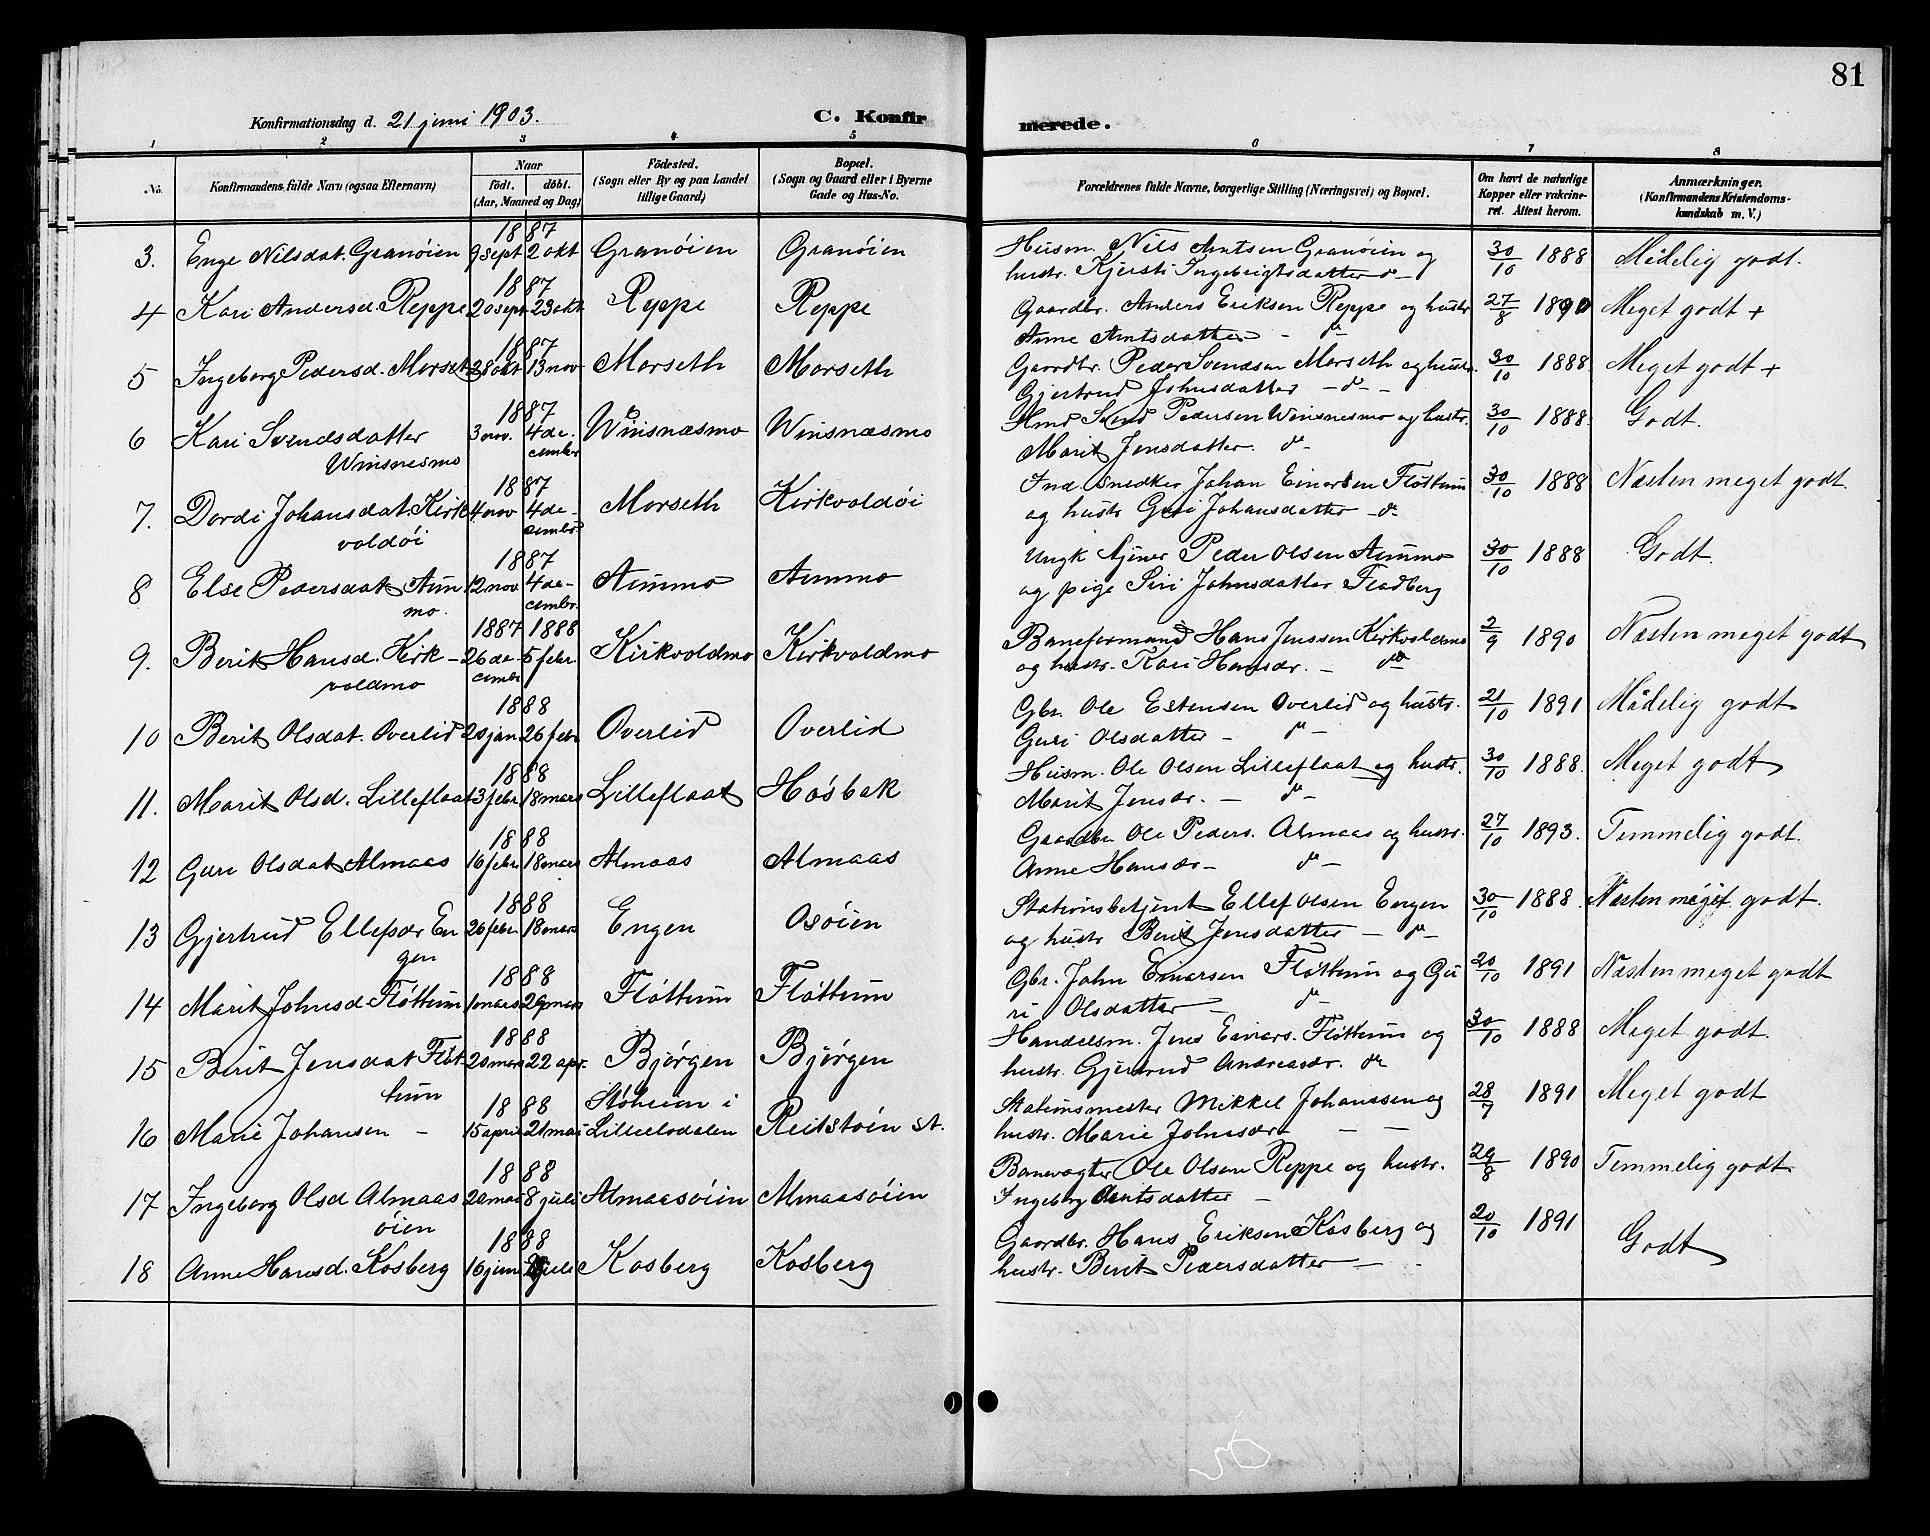 81
Konfirmationsdag d. 21 juni 1903.
C. Konfirmerede.
1 2 3 4 5 6 7 8
No.
Konfirmandens fulde Navn (ogsaa Efternavn)
Naar
født. døbt.
(Aar, Maaned og Dag)
Födested.
(Sogn eller By og paa Landet
tillige Gaard)
Bopæl.
(Sogn og Gaard eller i Byerne
Gade og Hus-No.
Forældrenes fulde Navne, borgerlige Stilling (Næringsvei) og Bopæl.
Om havt de naturlige
Kopper eller vakcine-
ret. Attest herom.
Anmærkninger.
(Konfirmandens Kristendoms-
kundskab m. V.)
1887
3. Enge Nilsdat. Granöien 9 sept 2 okt Granöien Granöien Husm. Nils Arntsen Granöien og 30/10 1888 Mådelig godt.
hustr. Kjersti Ingebrigtsdatter d–
1887
4 Kari Andersd. Reppe 20 sept 23 okt Reppe Reppe Gaardbr. Anders Eriksen Reppe og hustr 27/8 1890 Meget godt +
Anne Arntsdatter - d–
1887
5 Ingeborg Pedersd. Morseth 28 okt 13 nov Morseth Morseth Gaardbr. Peder Svendsen Morseth og hustr. 30/10 1888 Meget godt +
Gjertrud Johnsdatter – d –
1887
6 Kari Svendsdatter 3 nov. 4 de- Winsnæsmo Winsnæsmo Hmd Svend Pedersen Winsnesmo og hustr. 30/10 1888. Godt.
Winsnesmo cember Marit Jensdatter. d–
1887
7. Dordi Johansdat. Kirk 4 nov 4 de- Morseth Kirkvoldöi Ind. snedker Johan Einarsen Flöttum 30/10 1888 Næsten meget godt.
voldöi cembr og hustr Guri Johansdatter – d–
1887
8 Else Pedersdat Aun 12 nov 4 de- Aunmo Aunmo Ungk tjener Peder Olsen Aunmo 30/10 1888 Godt.
mo. cembr. og pige Siri Johnsdatter Fladberg
1887 1888
9. Berit Hansd. Kirk- 26 de- 5 febr. Kirkvoldmo Kirkvoldmo Baneformand Hans Jenssen Kirkvoldmo 2/9 1890 Næsten meget godt
voldmo cembr og hustr. Kari Hansdr. – do
1888
10 Berit Olsdat. Overlid 20 jan 26 febr Overlid Overlid Gbr. Ole Estensen Overlid og hustr. 21/10 1891 Mådelig godt
Guri Olsdatter – d–
1888
11. Marit Olsd. Lilleflaat 13 febr. 18 mars Lilleflaat Hosbak Husm. Ole Olsen Lilleflaat og hustr. 30/10 1888. Meget godt
Marit Jensdr. – d–
1888
12 Guri Olsdat Almaas 16 febr. 18 mars Almaas Almaas Gaardbr. Ole Peders. Almaas og hustr. 27/10 1893. Temmelig godt.
Anne Hansdr – d–
1888
13 Gjertrud Ellefsdr En 26 febr. 18 mars Engen Osöien Stationsbetjent Ellef Olsen Engen 30/10 1888 Næsten meget godt.
gen og hustr Berit Jensdatter – d–
1888
14 Marit Johnsd. Flöttum 1 mars 29 mars Flöttum Flöttum Gbr. John Einarsen Flöttum og Gu 20/10 1891 Næsten meget godt
ri Olsdatter – d–
1888
15 Berit Jensdat Flöt 20 mars 22 apr. Bjørgen Bjørgen Handelsm. Jens Einars. Flöttum og 30/10 1888 Meget godt.
tum hustr. Gjertrud Andreasdr. d
1888 Støheien i
16 Marie Johansen – 15 april 21 mai Lilleelvdalen Reitstöen st. Stationsmester Mikkel Johanssen og 28/7 1891 Meget godt
hustr. Marie Johnsdr – –
1888
17 Ingeborg Olsd Almaas 20 mai 8 juli Almaasöien Almaasöien Banevogter Ole Olsen Reppe og hustr. 29/8 1890 Temmelig godt
öien Ingeborg Arntsdatter –
1888
18 Anne Hansd. Kosberg 16 juni juli Kosberg Kosberg Gaardbr. Hans Eriksen Kosberg og 20/10 1891 Godt
hustr. Berit Pedersdatter –